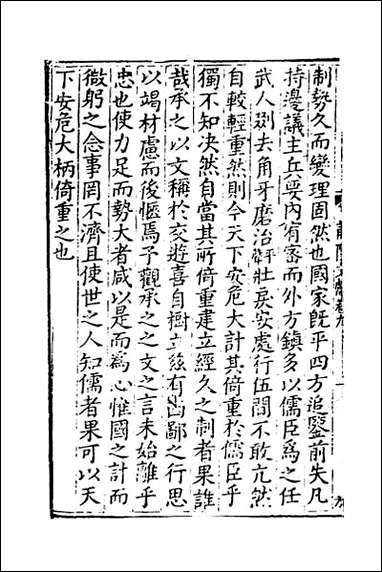 制勢久而變理固然也國家既平四方追鑒前失凡
持邊議主兵要內有審而外方鎮多以儒臣爲之任
武人剥去角牙磨治壯戾安處行伍間不敢亢然
自較輕重然則今天下安危大計其倚重於儒臣乎
獨不知决然自當其所倚重建立經久之制者果誰
哉承之以文稱於交遊喜自樹立兹有齒鄙之行思
以竭材慮而後愜焉予觀承之之文之言未始離乎
忠也使力足而勢大者咸以是而爲心惟國之計而
微躬之念事罔不濟且使世之人知儒者果可以天
下安危大柄倚重之也